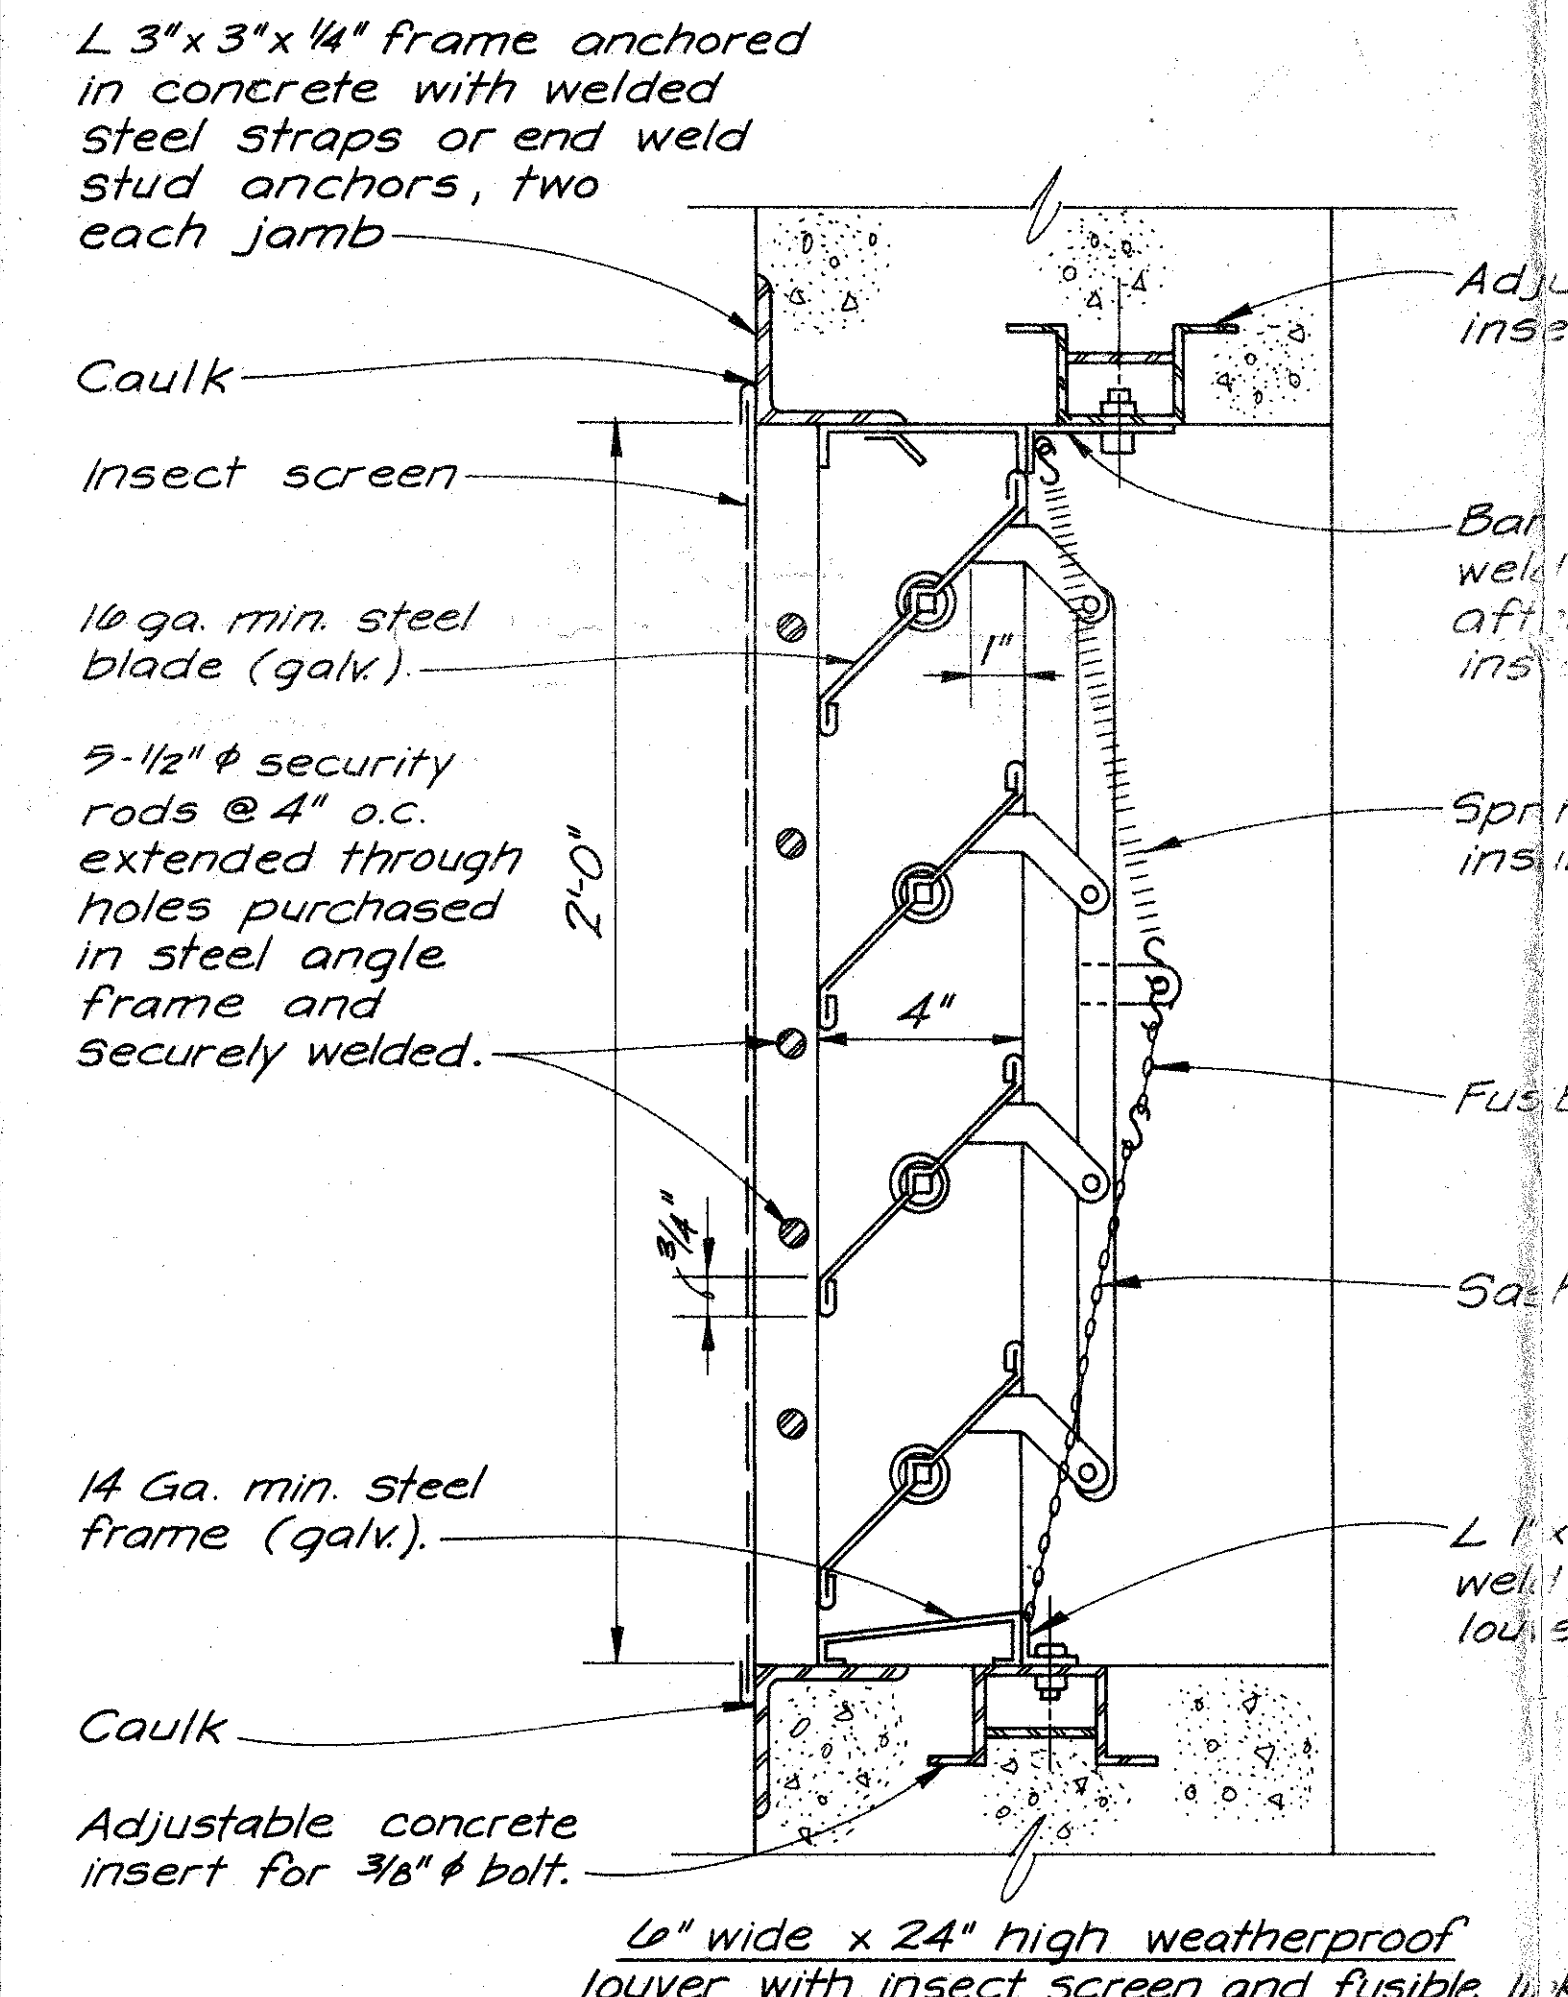 L 3"x 3"x 1/4" frame anchored
in concrete with welded
steel straps or end weld
stud anchors, two
each jamb
Caulk
Insect screen
16 ga. min. steel
blade (galv.).
5-1/2" φ security
rods @ 4" o.c.
extended through
holes purchased
in steel angle
frame and
securely welded.
14 Ga. min. steel
frame (galv.).
Caulk
Adjustable concrete
insert for 3/8" φ bolt.
2'-0"
3/4"
1"
4"
Bar
L 1" x
6" wide x 24" high weatherproof
louver with insect screen and fusible